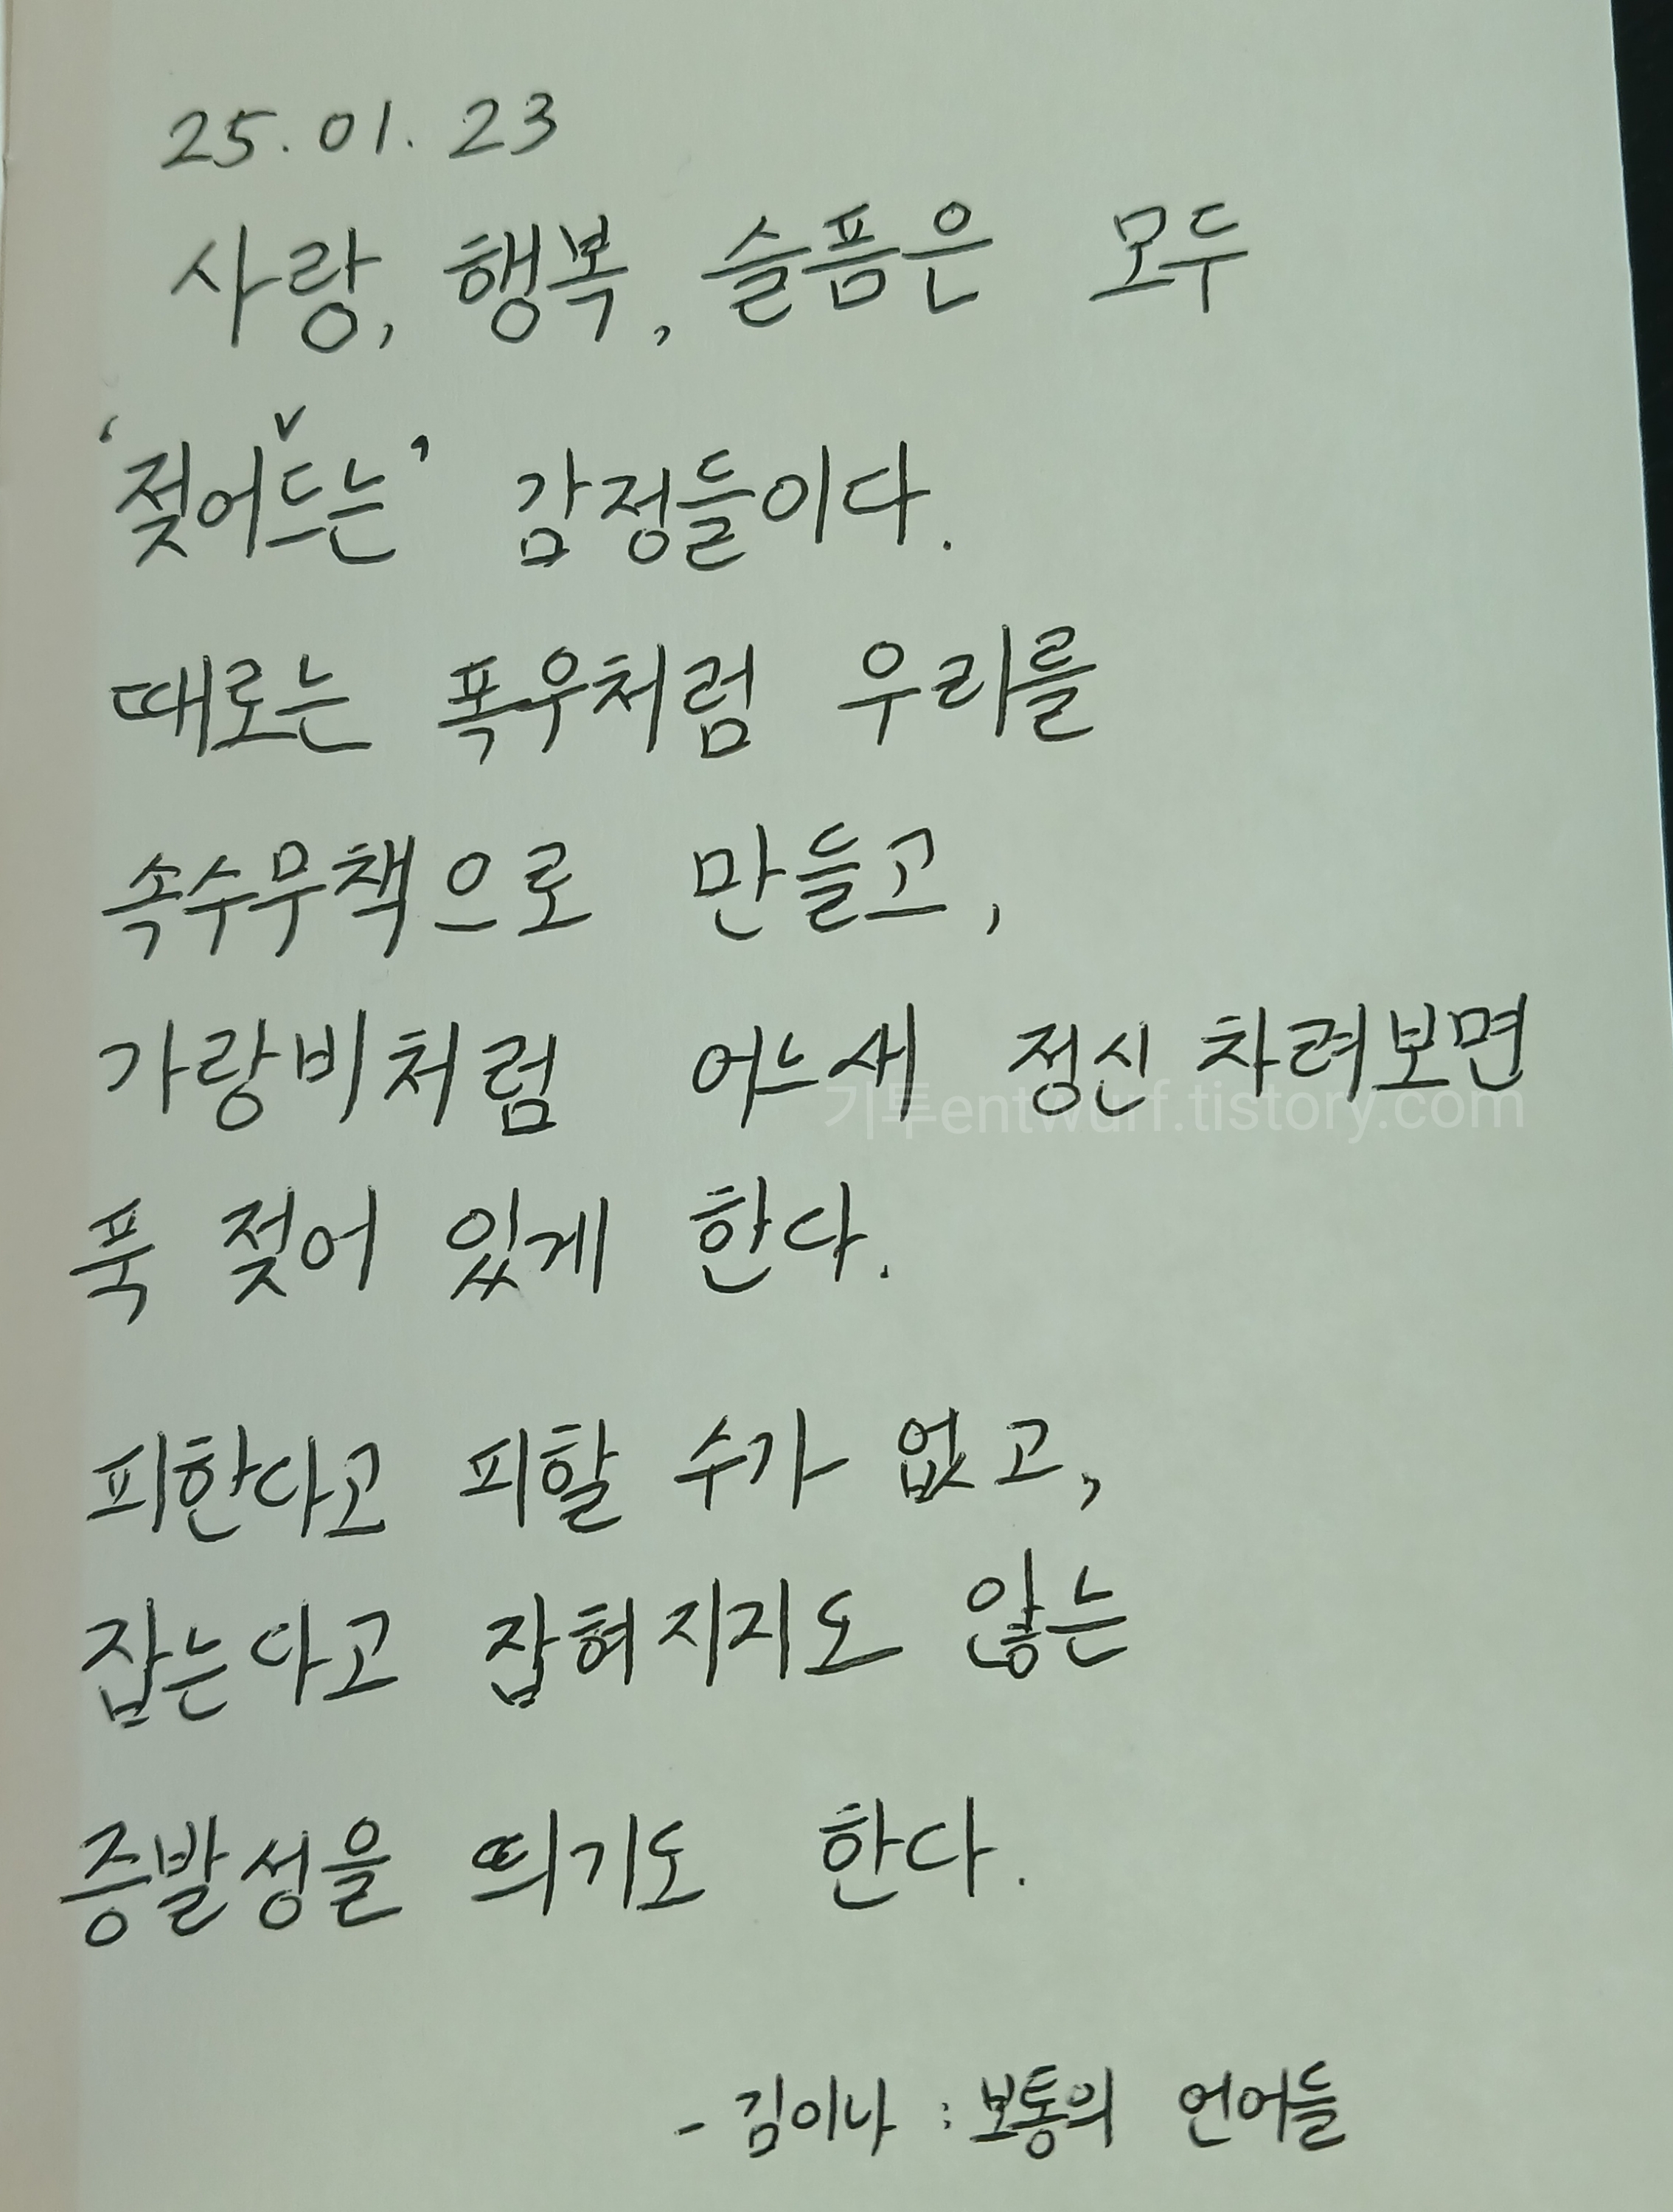 25.01.23
사랑, 행복, 슬픔은 모두
‘젖어∨드는’ 감정들이다.
때로는 폭우처럼 우리를
속수무책으로 만들고,
가랑비처럼 어느새 정신 차려보면
기투entwurf.tistory.com
푹 젖어 있게 한다.
피한다고 피할 수가 없고,
잡는다고 잡혀지지도 않는
증발성을 띄기도 한다.
- 김이나 : 보통의 언어들